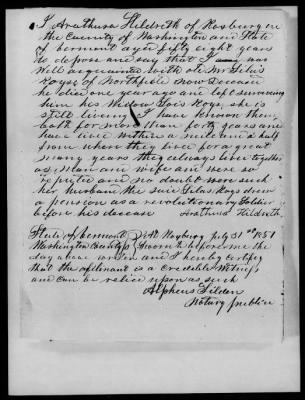 I Arathusa Hildreth of Roxbury in
the County of Washington and State
of Vermont aged fifty eight years
do depose and say that I was
well acquainted with old Mr Silas
Royse of Northfield now decease
he died one year ago and left surviving
him his Widow Lois Roys, she is
still living I have known them
both for more than forty years and
have lived within a mile and a half
from where they live for a great
many years they always live together
as Man and wife and were so
reputed and no doubt were such
her husband the said Silas Roys drew
a pension as a revolutionary Soldier
before his decease Arathusa Hildreth
State of Vermont } At Roxbury July 31st 1851
Washington County ss } Sworn to before me the
day above written and I hereby certify
that the affienant is a credible Witness
and can be relied upon as such
Alpheus Tilden
Notary Public